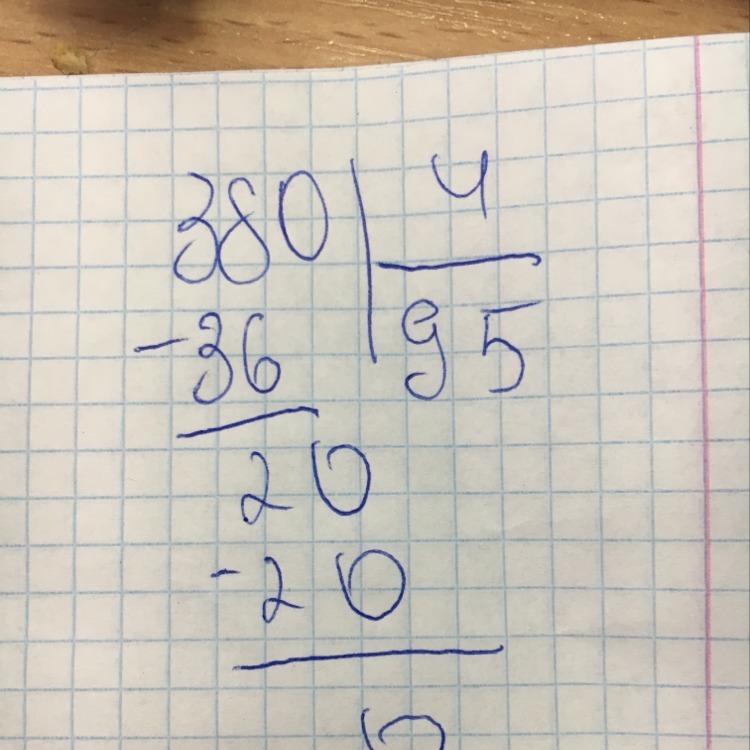 380 4
-36 95
20
-20
0